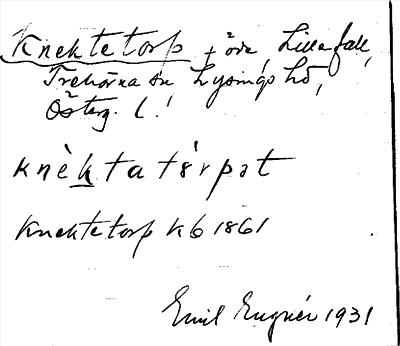 Knektetorp † öde, Lillefall,
Trehörna sn Lysings hd,
Österg. l.
knèktatôrpət
Knektetorp kb 1861
Emil Eugnér 1931